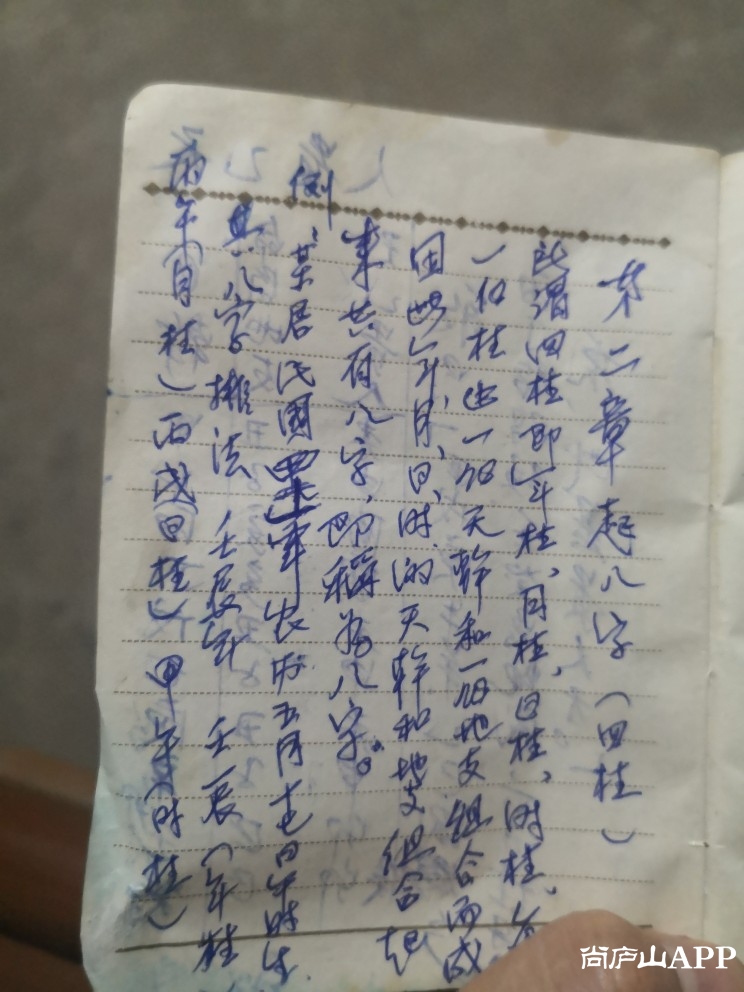 第二章 起八字（四柱）
所谓四柱即年柱、月柱、日柱、时柱、
一位柱由一个天幹和一个地支组合而成
因此年、月、日、时的天幹和地支组合起
来共有八字，即稱为八字。
例：某居民國四十一年农历五月十七日午时生
其八字推法 壬辰年 壬辰（年柱
丙午（月柱）丙戌日柱）甲午（时柱）
尚庐山APP